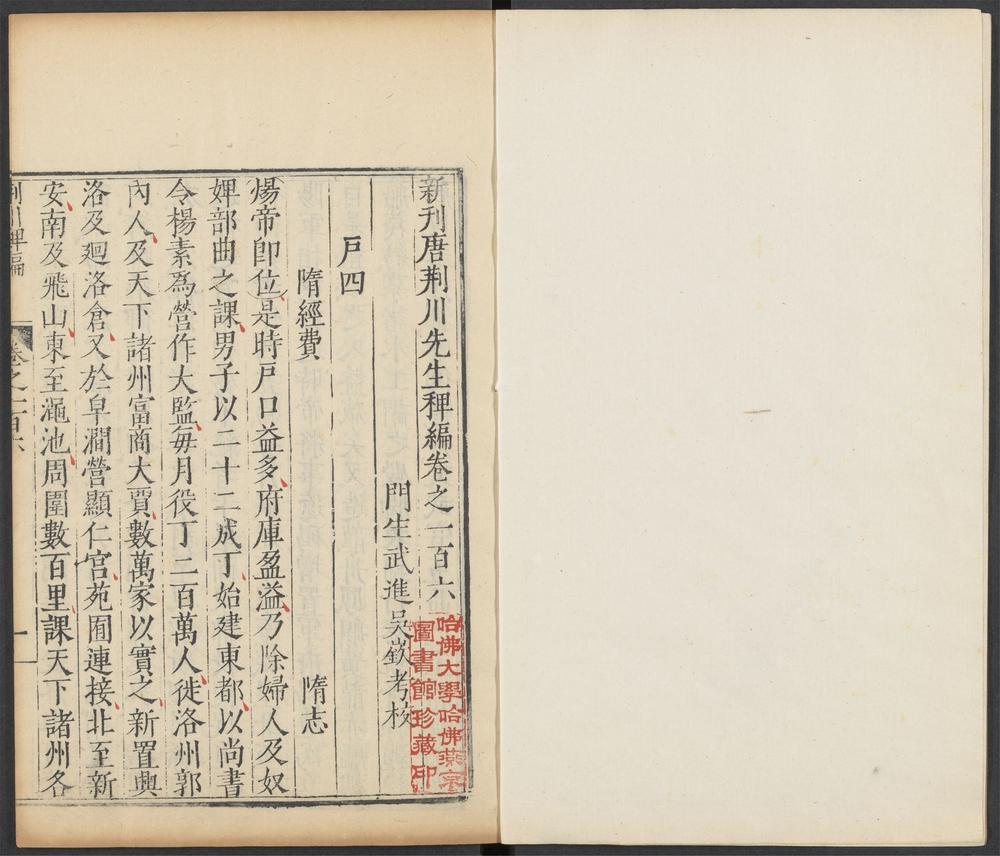 新刊唐荆川先生稗編卷之一百六
門生武進吳嶔考校
戶四
隋經費 隋志
煬帝卽位是時戶口益多府庫盈溢乃除婦人及奴
婢部曲之課男子以二十二成丁始建東都以尚書
令楊素爲營作大監每月役丁二百萬人徙洛州郭
內人及天下諸州富商大賈數萬家以實之新置興
洛及廻洛倉又於皁澗營顯仁宫苑囿連接北至新
安南及飛山東至澠池周圍數百里課天下諸州各
荆川稗編 卷之一百六 一
哈佛大學哈佛燕京
圖書館珍藏印